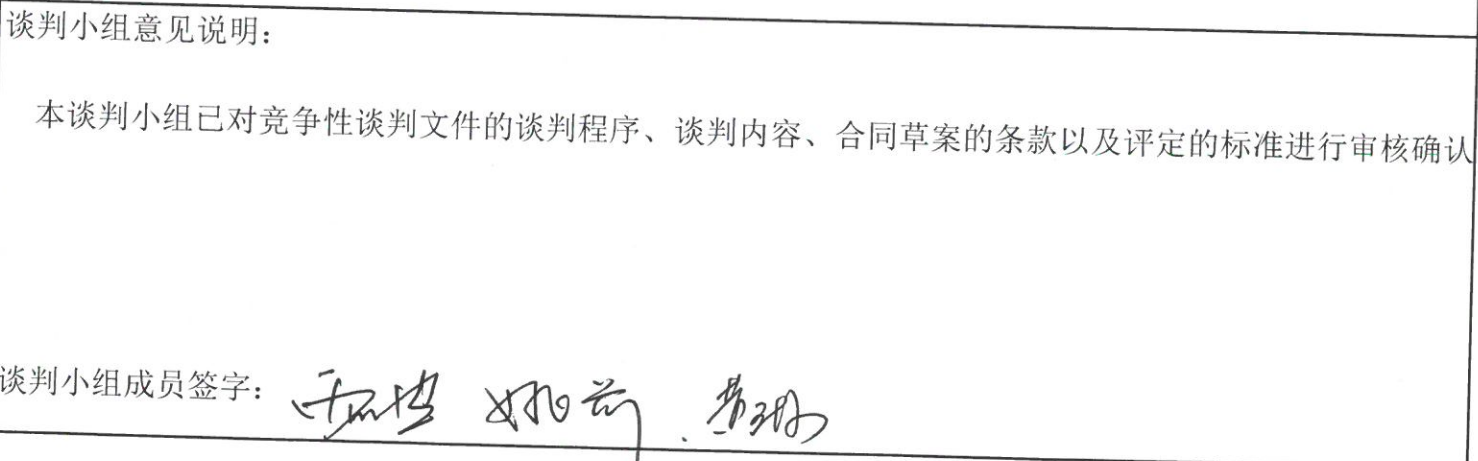 谈判小组意见说明：
本谈判小组已对竞争性谈判文件的谈判程序、谈判内容、合同草案的条款以及评定的标准进行审核确认
谈判小组成员签字：